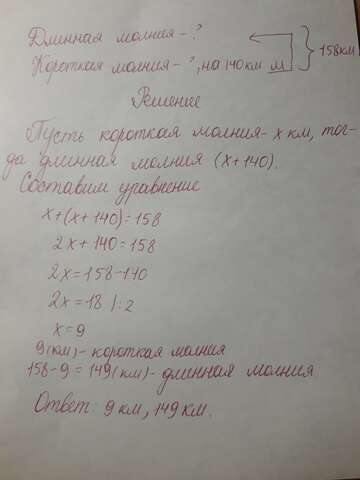 Длинная молния - ?
Короткая молния - ?, на 140 км м
158 км
Решение
Пусть короткая молния - x км, тог-
да длинная молния (x + 140).
Составим уравнение
x + (x + 140) = 158
2x + 140 = 158
2x = 158 - 140
2x = 18 |: 2
x = 9
9 (км) - короткая молния
158 - 9 = 149 (км) - длинная молния.
Ответ: 9 км, 149 км.